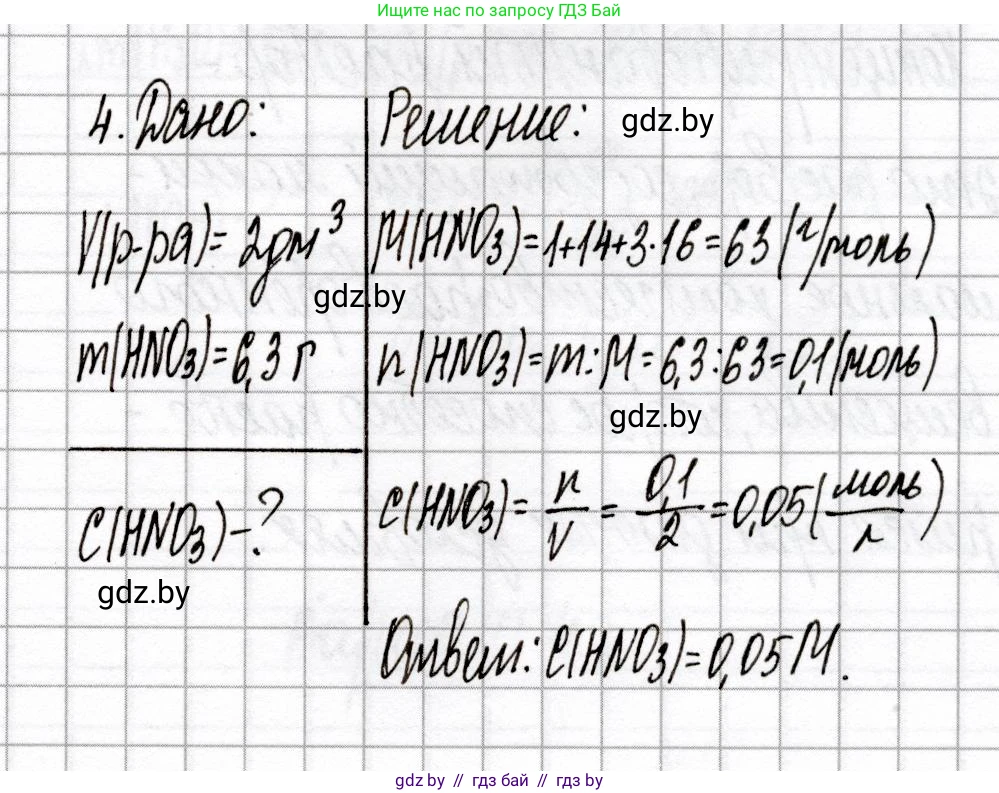 Ищите нас по запросу ГДЗ Бай
4. Дано:
V(р-ра) = 2дм³
m(HNO₃) = 6,3 г
C(HNO₃) - ?
Решение:
M(HNO₃) = 1+14+3·16 = 63 (г/моль)
n(HNO₃) = m : M = 6,3 : 63 = 0,1 (моль)
C(HNO₃) = n/V = 0,1/2 = 0,05 (моль/л)
Ответ: C(HNO₃) = 0,05 М.
gdz.by
gdz.by
gdz.by
gdz.by
gdz.by // гдз бай // гдз by